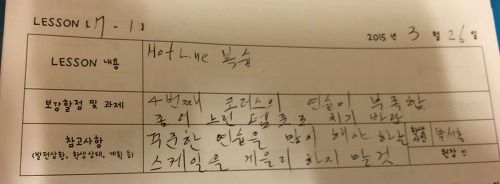 LESSON [M - 1]
2015 년 3 월 26 일
LESSON 내용
Hot Line 복습
보강할점 및 과제
4번째 코러스의 연습이 부족함
좀 더 느린 템포로 치기 바람
참고사항
(발전상황, 학생상태, 계획 등)
꾸준한 연습을 많이 해야 하는
스케일을 게을리 하지 말것
원장 인